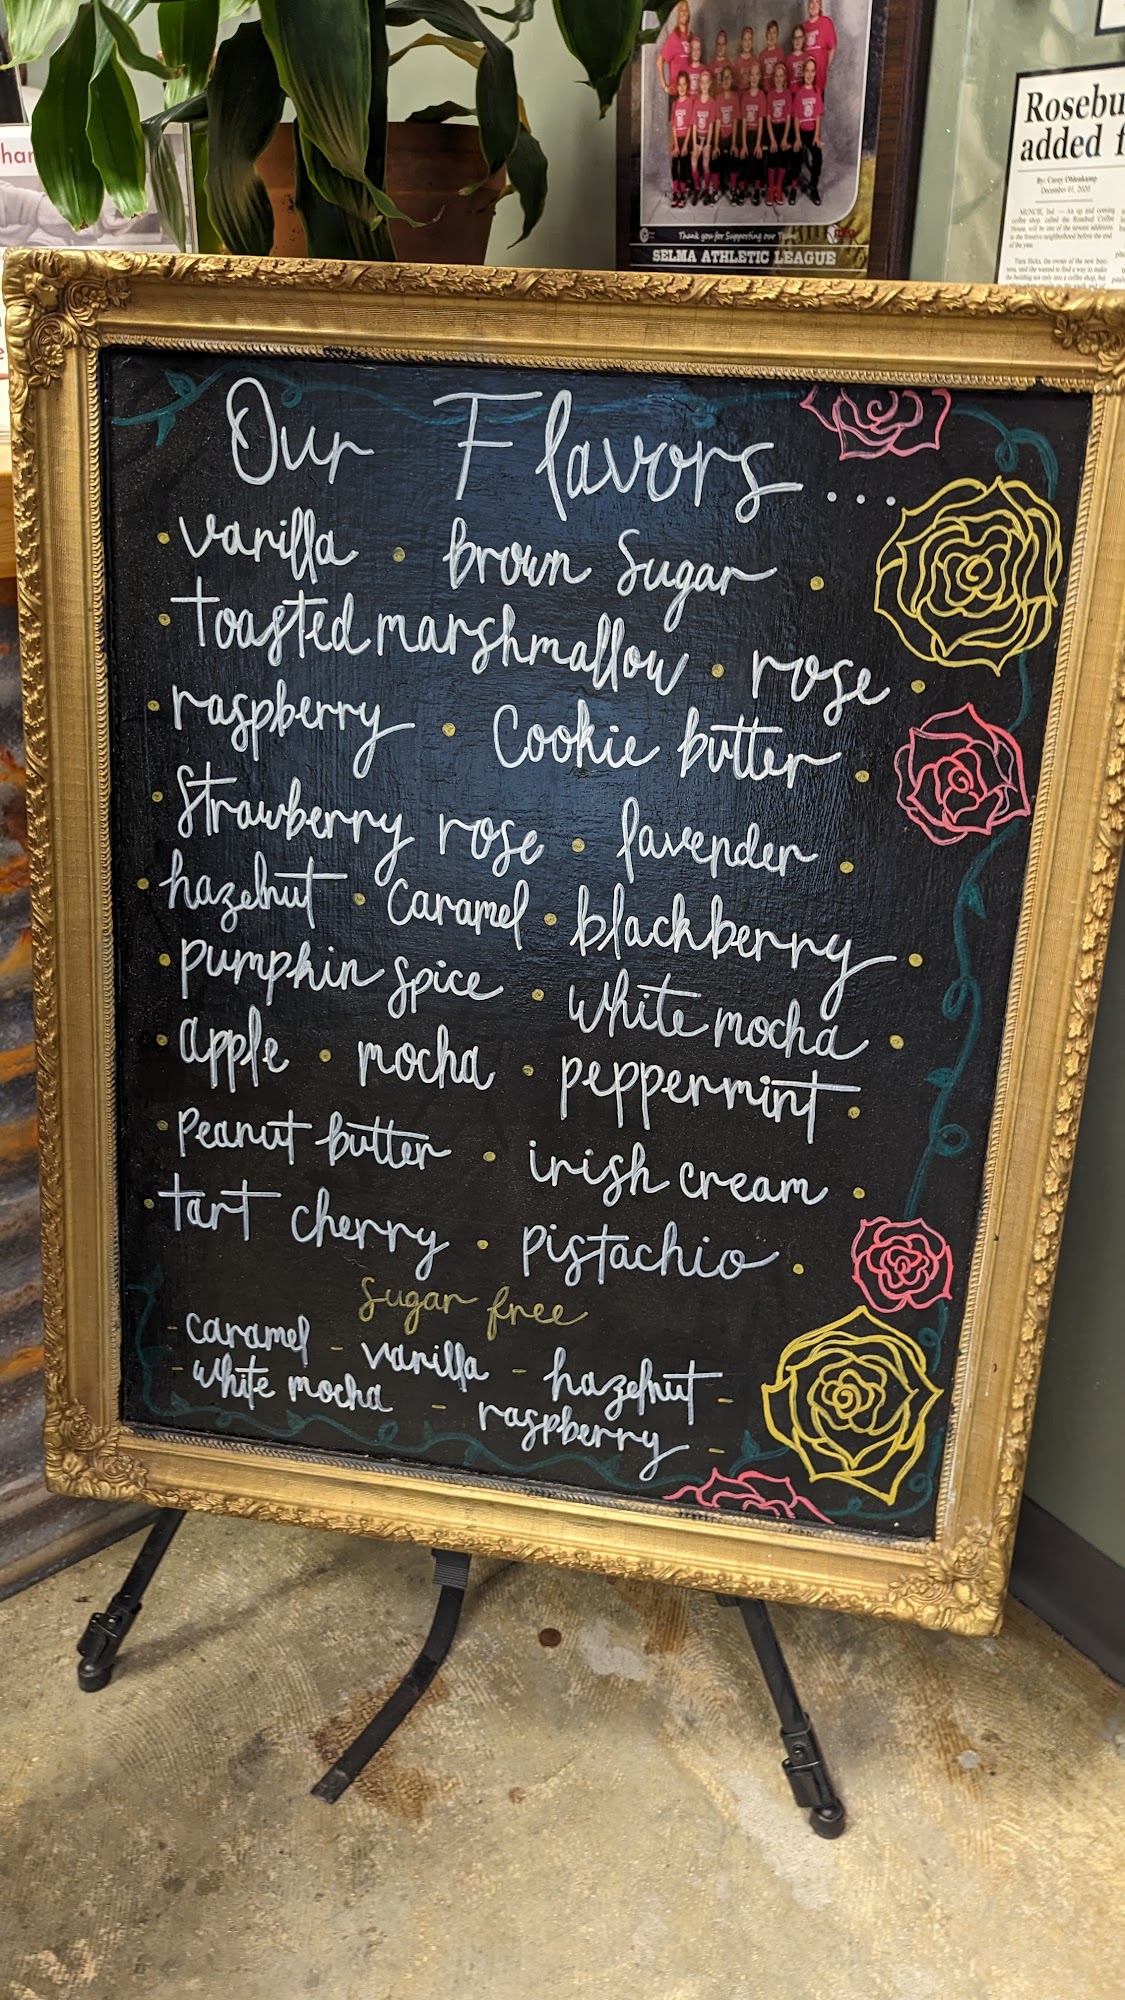 Thank you for Supporting our Team!
SELMA ATHLETIC LEAGUE
Rosebu
added f
By: Corey Ohlenkamp
December 01, 2020
MUNCIE, Ind — An up and coming
coffee shop, called the Rosebud Coffee
House, will be one of the newest additions
to the
neighborhood before the end
of the year.
Tiara Hicks, the owner of the new busi-
ness, said she wanted to find a way to make
the building not only into a coffee shop, but
Our Flavors....
• vanilla • brown Sugar •
• toasted marshmallow • rose •
• raspberry • Cookie butter •
• Strawberry rose • lavender •
• hazelnut • Caramel • blackberry •
• pumpkin spice • white mocha •
• apple • mocha • peppermint •
• Peanut butter • irish cream •
• tart cherry • pistachio •
Sugar free
- caramel - vanilla - hazelnut -
- white mocha - raspberry -